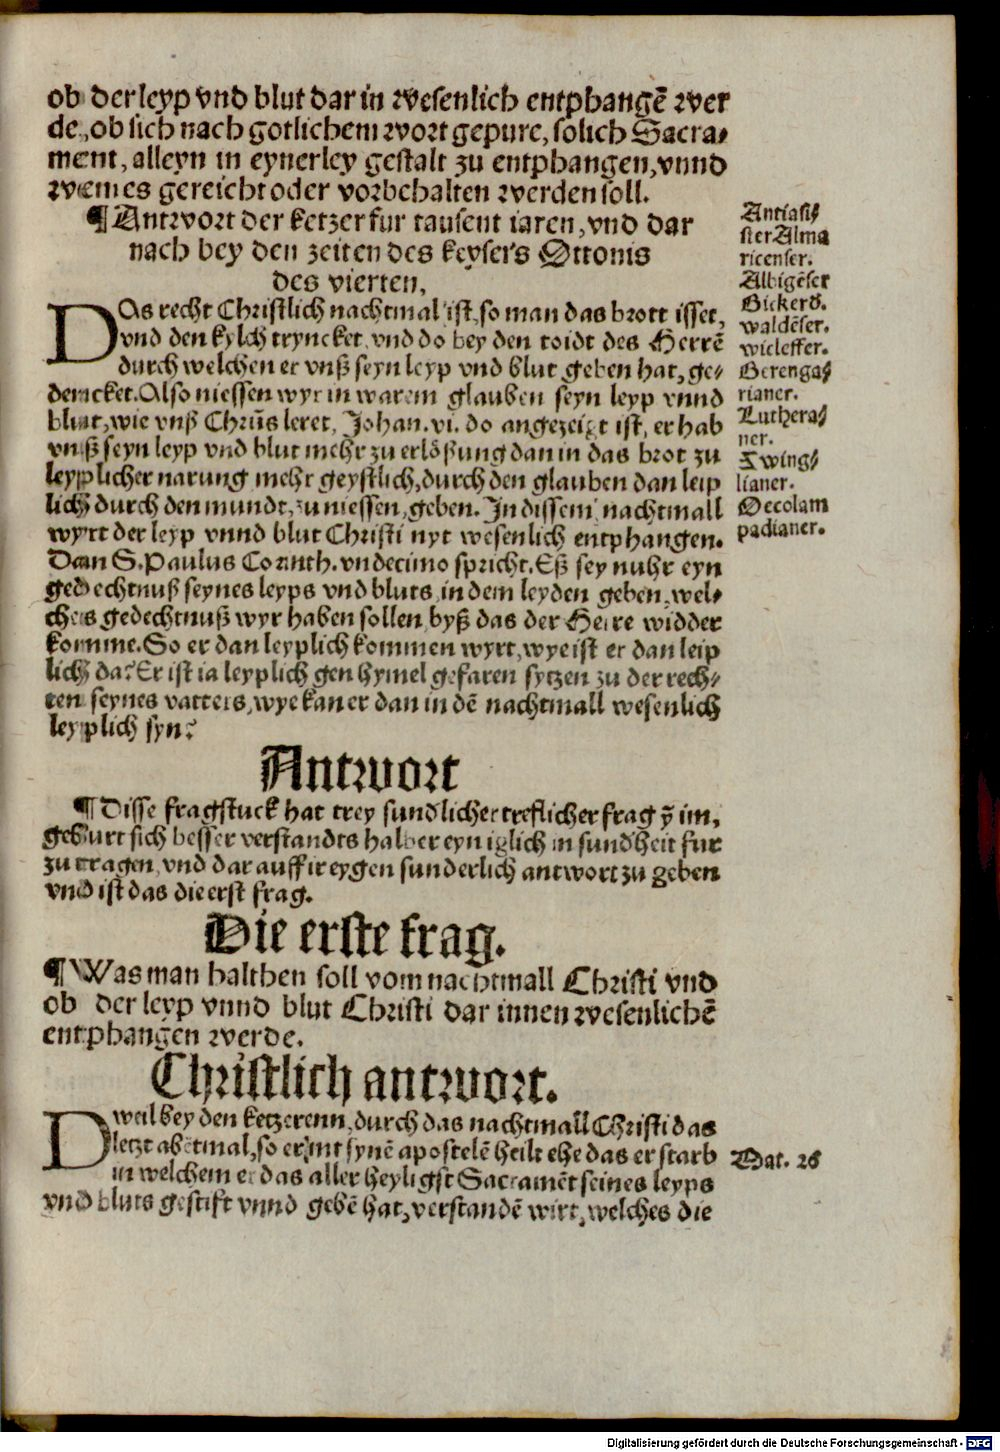 ob der leyp vnd blut dar in wesenlich entphangē wer
de, ob sich nach gotlichem wort gepure, solich Sacra⸗
ment, alleyn in eynerley gestalt zu entphangen, vnnd
wem es gereicht oder vorbehalten werden soll.
¶ Antwort der ketzer fur tausent iaren, vnd dar
nach bey den zeiten des keysers Ottonis
des vierten,
DAs recht Christlich nachtmal ist, so man das brott isset,
vnd den kylch tryncket, vnd do bey den toidt des Herrē
durch welchen er vnß seyn leyp vnd blut geben hat, ge⸗
dencket. Also niessen wyr in warem glauben seyn leyp vnnd
blut, wie vnß Chrūs leret, Johan. vi. do angezeigt ist, er hab
vnß seyn leyp vnd blut mehr zu erlößung dan in das brot zu
leyplicher narung mehr geystlich, durch den glauben dan leip
lich durch den mundt, zu niessen, geben. In dissem nachtmall
wyrt der leyp vnnd blut Christi nyt wesenlich entphangen.
Dan S. Paulus Corinth. vndecimo spricht. Eß sey nuhr eyn
gedechtnuß seynes leyps vnd bluts in dem leyden geben, wel⸗
ches gedechtnuß wyr haben sollen byß das der Herre widder
komme. So er dan leyplich kommen wyrt, wye ist er dan leip
lich da? Er ist ia leyplich gen hymel gefaren sytzen zu der rech⸗
ten seynes vatters, wye kan er dan in dē nachtmall wesenlich
leyplich syn?
Antiasi⸗
ster Alma
ricenser.
Albigēser
Bickerd.
waldēser.
wicleffer.
Berenga⸗
rianer.
Luthera⸗
ner.
Zwing⸗
lianer.
Oecolam
padianer.
Antwort
¶ Disse fragstuck hat trey sundlicher treflicher frag ȳ im,
geburt sich besser verstandts halber eyn iglich in sundheit fur
zu tragen, vnd dar auff ir eygen sunderlich antwort zu geben
vnd ist das die erst frag.
Die erste frag.
¶ Was man halthen soll vom nachtmall Christi vnd
ob der leyp vnnd blut Christi dar innen wesenlichē
entphangen werde.
Christlich antwort.
DWeil bey den ketzerenn, durch das nachtmall Christi das
letzt abetmal, so er mt synē apostelē heilt ehe das er starb
in welchem er das aller heyligst Sacramēt seines leyps
vnd bluts gestift vnnd gebē hat, verstandē wirt, welches die
Mat. 26
Digitalisierung gefördert durch die Deutsche Forschungsgemeinschaft - DFG